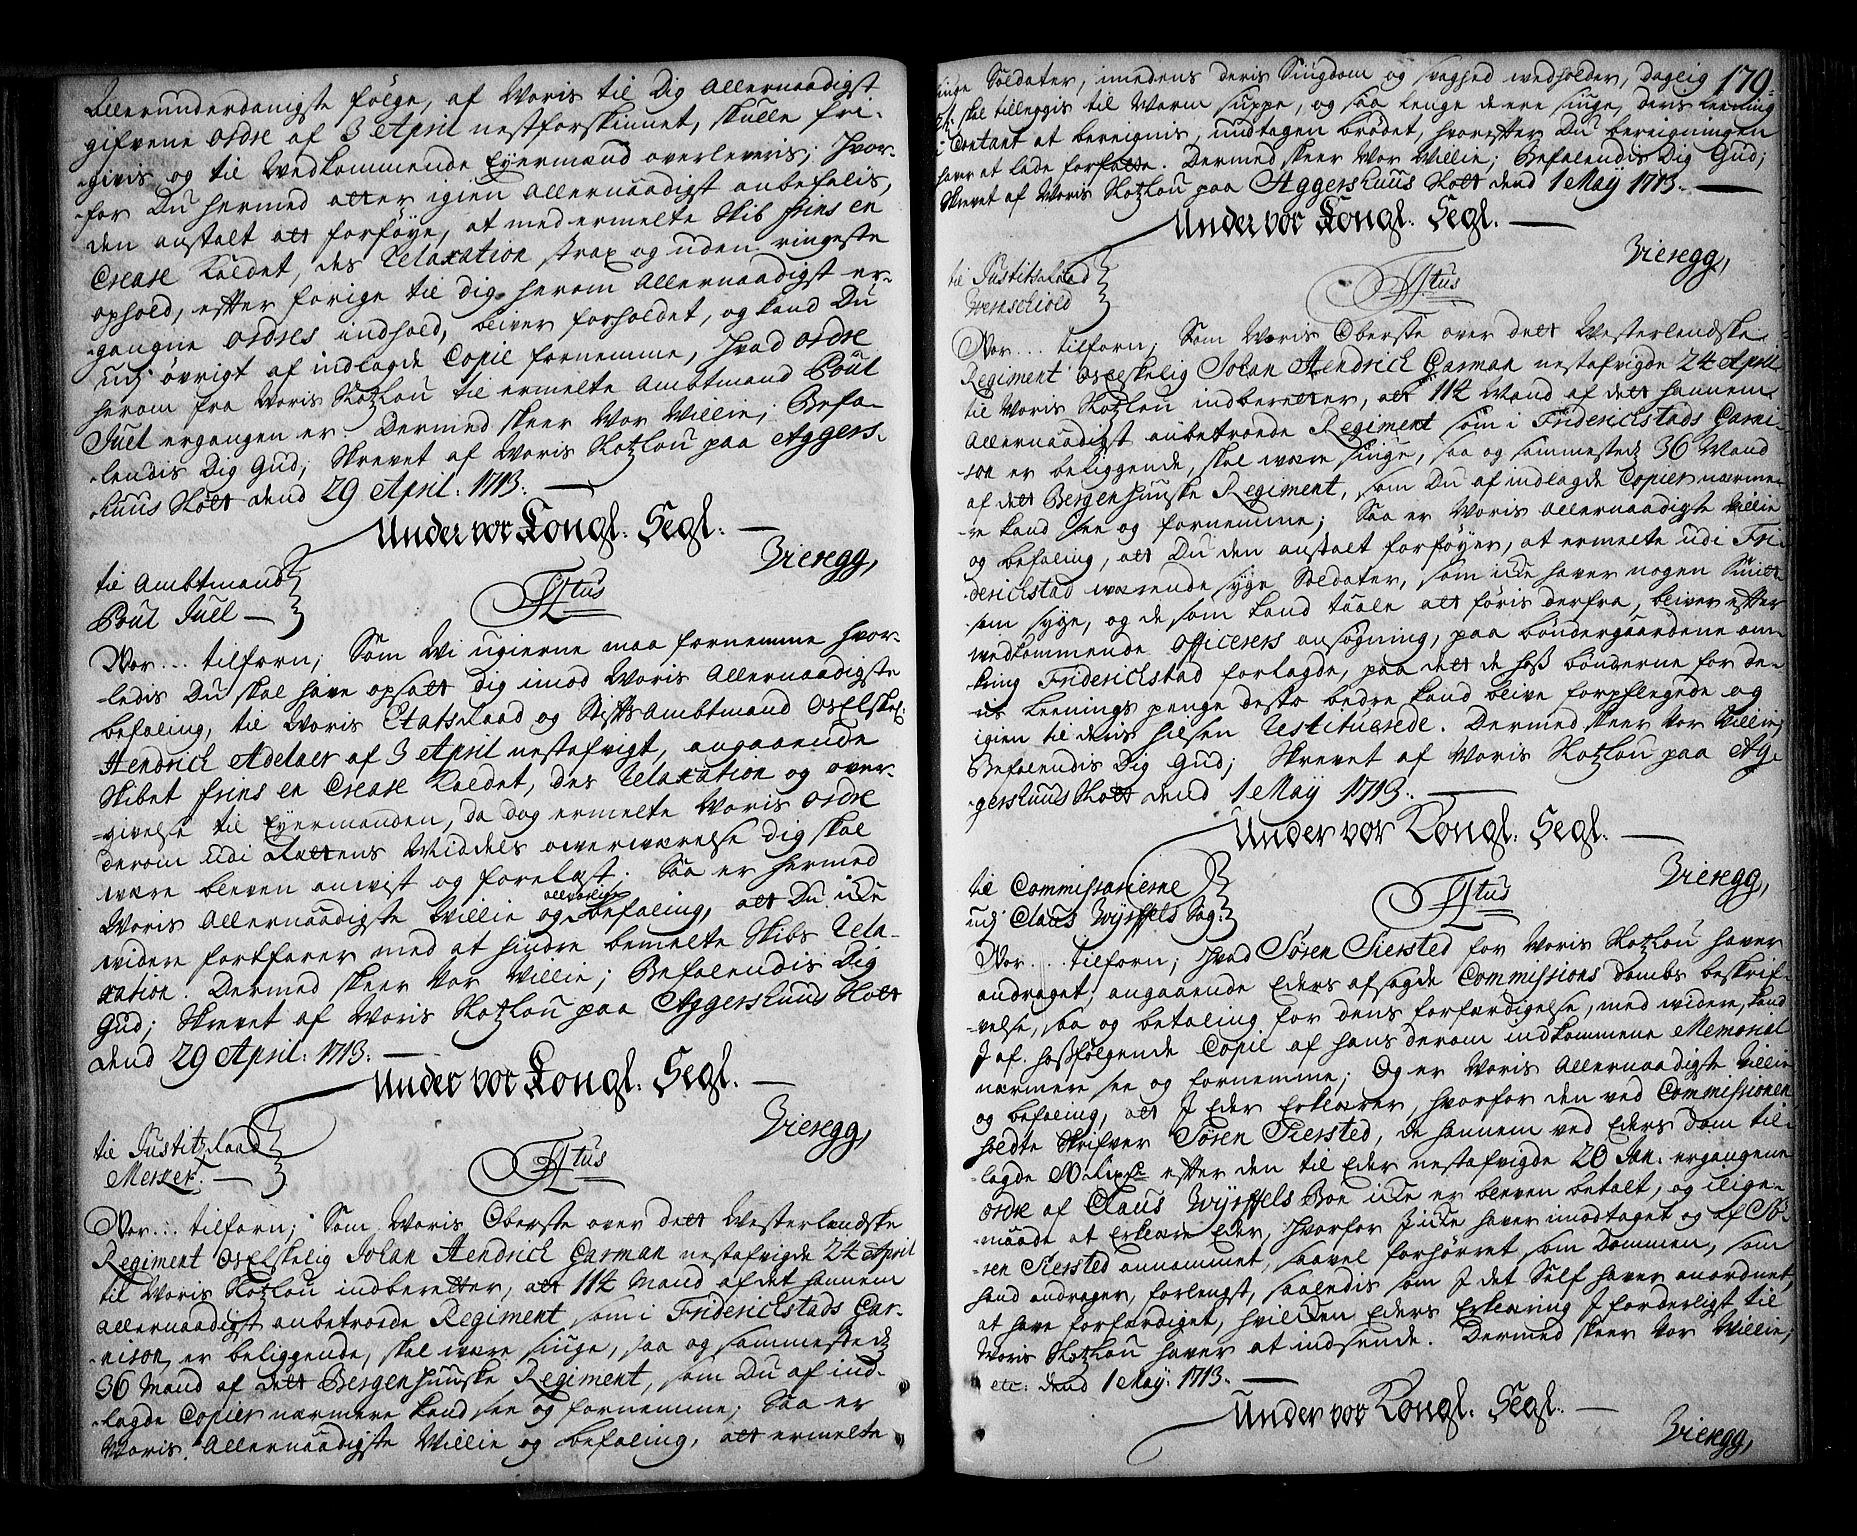 Allerunderdanigste følge, af Woris til Dig Allernaadigst
gifvene Ordre af 3 April nestforskinnet, skulle fri-
-givis og til Wedkommende Eyermænd overleveris; Hvor-
-for Du hermed atter igien Allernaadigst anbefalis,
den anstalt att forføye, at med ermelte Skib Prins en
Crease Kaldet, des Relaxation strax og uden ringeste
ophold, efter forige til dig herom Allernaadigst er-
-gangne Ordres indhold, bliver forholdet, og kand Du
udj øvrigt af indlagde Copie fornemme, Hvad Ordre
herom fra Woris Slotzlou til ermelte Ambtmand Poul
Juel ergangen er. Dermed skeer Vor Willie; Befa-
-lendis Dig Gud; Skrevet af Woris Slotzlou paa Aggers-
-huus Slott dend 29 April. 1713.
Under vor Kongl. Segl.
Vieregg,
til Ambtmand
Poul Juel
Tittus
Vor... tilforn; Som Wi ugierne maa fornemme hvor-
-ledis Du skal have opsatt dig imod Woris Allernaadigste
befaling, til Woris Etatsraad og StiftsAmbtmand Oselskel:
Hendrich Adelaer af 3 April nestafvigt, angaaende
Skibet Prins en Crease Kaldet, des Relaxation og over-
-givelse til Eyermanden, da dog ermelte Woris Ordre
derom udi Rettens Middels overværelse dig skal
være bleven anvist og forelæst. Saa er hermed
Woris Allernaadigste Willie og alvorlige befaling, att Du icke
widere fortfarer med at hindre bemelte Skibs Rela-
xation. Dermed skeer Vor Willie; Befalendis Dig
Gud; Skrevet af Woris Slotzlou paa Aggershuus Slott
dend 29 April. 1713.
Under vor Kongl. Segl.
Vieregg,
til Justitzraad
Merker.
Tittus
Vor... tilforn; Som Woris Oberste over dett Westerlendske
Regiment Oselskelig Johan Hendrich Garman nestafvigde 24 April
til Woris Slotzlou indberetter, att 114 Mand af det hannem
allernaadigst anbetroede Regiment som i Friderichstads Gar-
-nison er beliggende, skal være siuge, saa og sammestedz
36 Mand af dett Bergenhuuske Regiment, som Du af ind-
-lagde Copier nærmere kand see og fornemme; Saa er
Woris Allernaadigste Willie og befaling, att ermelte
179.
siuge Soldater, imedens deris Siugdom og svaghed wedholder, daglig
skal tilleggis til Warm suppe, og saa lenge de ere siuge, deris Leening
i Contant at bereignis, undtagen brødet, hvorefter Du bereigningen
haver at lade forfatte. Dermed skeer Vor Willie; Befalendis Dig Gud;
Skrevet af Woris Slotzlou paa Aggershuus Slott dend 1 May 1713.
Under vor Kongl. Segl.
Vieregg,
til Justitzraad
Wernschiold
Tittus
Vor... tilforn; Som Woris Oberste over dett Westerlendske
Regiment Oselskelig Johan Hendrich Garman nestafvigde 24 April
til Woris Slotzlou indberetter, att 114 Mand af dett hannem
Allernaadigst anbetroede Regiment som i Friderichstads Garni-
-son er beliggende, skal være siuge, saa og sammestedz 36 Mand
af dett Bergenhuuske Regiment, som Du af indlagde Copier nærme-
-re kand see og fornemme; Saa er Woris Allernaadigste Willie
og befaling, att Du den anstalt forføyer, at ermelte udi Fri-
-derichstad værende syge Soldater, som icke haver nogen Smitt-
-som syge, og de som kand taale att føris derfra, bliver efter
wedkommende Officerers ansøgning, paa bøndergaardene om-
-kring Friderichstad forlagde, paa dett de hoß bønderne for de-
-ris Leenings penge desto bedre kand blive forpflegede og
igien til deris Helsen Restituerede. Dermed skeer Vor Willie;
Befalendis Dig Gud; Skrevet af Woris Slotzlou paa Ag-
-gershuus Slott dend 1 May 1713.
Under vor Kongl. Segl.
Vieregg,
til Commissarierne
udj Claus Wijrffels Sag.
Tittus
Vor... tilforn; Hvad Søren Siersted for Woris Slotzlou haver
andraget, angaaende Eders afsagde Commissions dombs beskrif-
-velse, saa og betaling for dens forfærdigelse, med widere, kand
I af hoßfølgende Copie af hans derom indkommene Memorial
nærmere see og fornemme; Og er Woris Allernaadigste Willie
og befaling, att I Eder Erklærer, hvorfor den ved Commissionen
holdte Skrifver Søren Siersted, de hannem ved Eders Dom til-
-lagde 80 Rixdr. efter den til Eder nestafvigde 20 Jan. ergangene
Ordre af Claus Wijrffels Boe icke er bleven betalt, og i lige-
-maade at Erklære Eder, hvorfor I icke haver imodtaget og af Sø-
-ren Siersted annammet, saavel forhørret, som Dommen, som
hand andrager, forlengst, saaledis som I det Self haver anordnet,
at have forfærdiget, hvilcken Eders Erklæring I forderligst til
Woris Slotzlou haver at indsende. Dermed skeer Vor Willie;
etc: dend 1 May. 1713.
Under vor Kongl. Segl.
Vieregg,